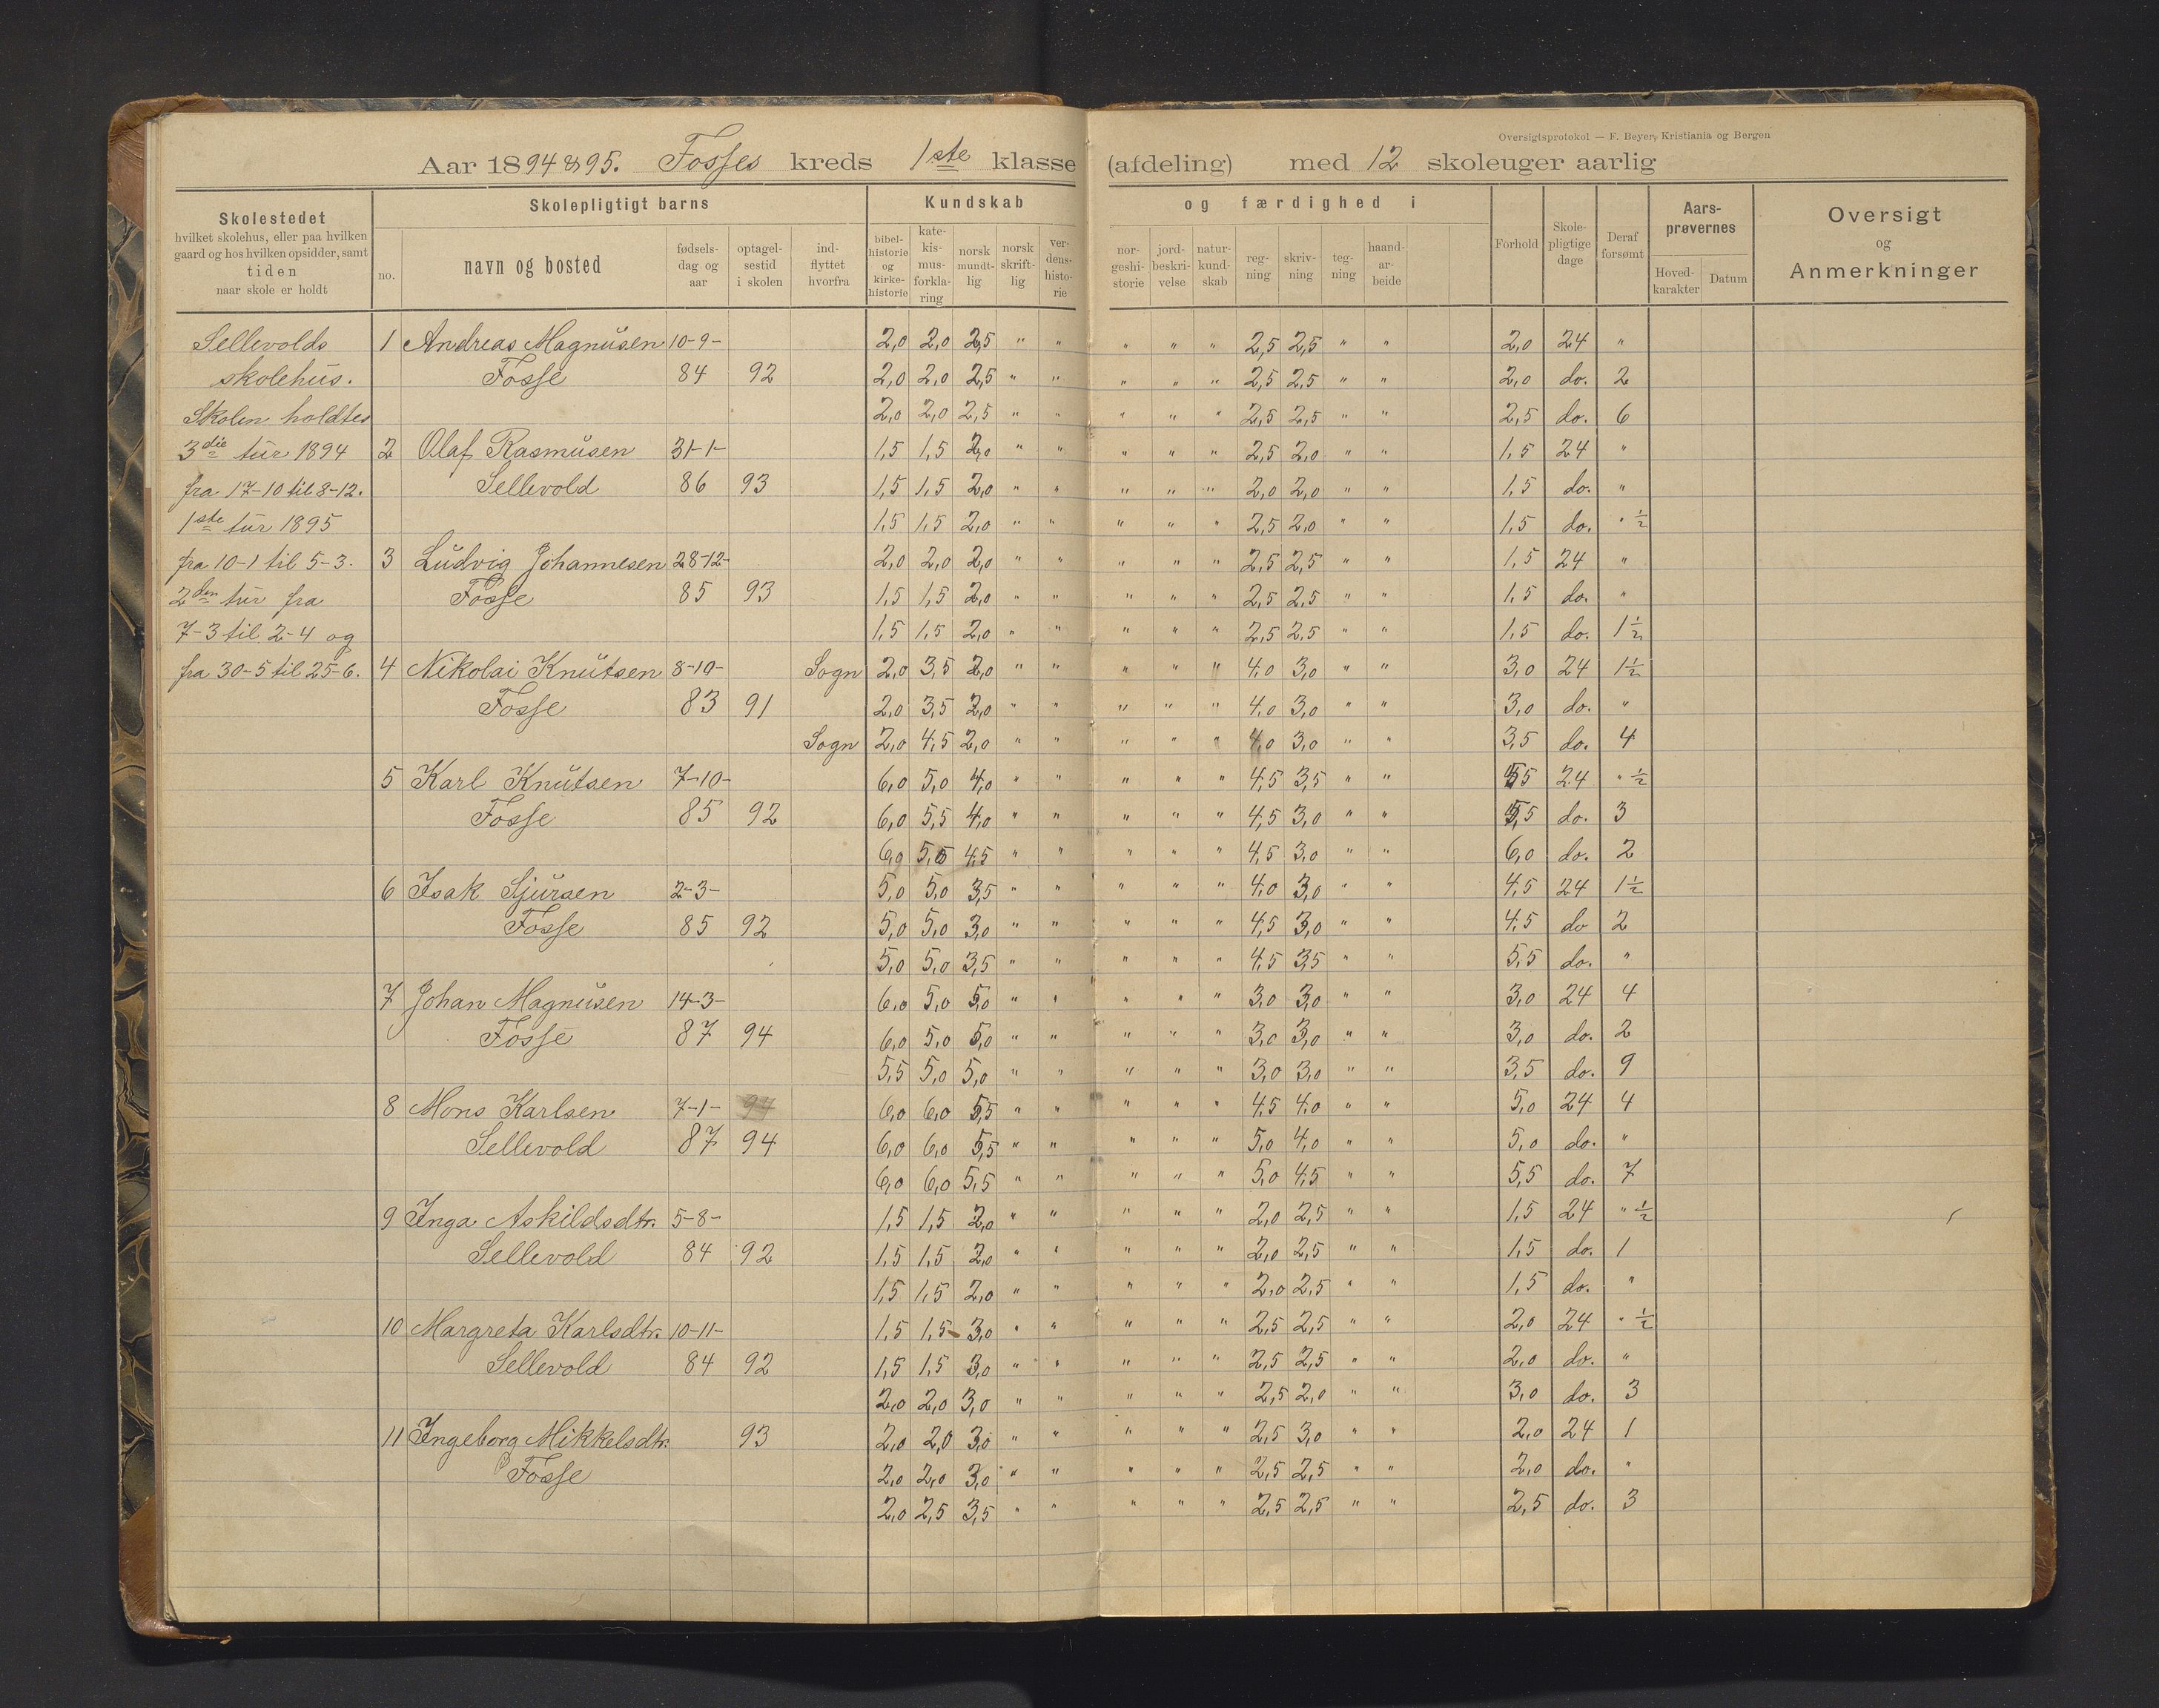 Oversigtsprotokol — F. Beyer, Kristiania og Bergen
Aar 1894 & 95. Fosses kreds 1ste klasse (afdeling) med 12 skoleuger aarlig
Skolestedet
hvilket skolehus, eller paa hvilken
gaard og hos hvilken opsidder, samt
tiden
naar skole er holdt
Skolepligtigt barns
no.
navn og bosted
fødsels-
dag og
aar
optagel-
sestid
i skolen
ind-
flyttet
hvorfra
Kundskab og færdighed i
bibel-
historie
og
kirke-
historie
kate-
kis-
mus-
forkla-
ring
norsk
mundt-
lig
norsk
skrift-
lig
ver-
dens-
histo-
rie
nor-
geshi-
storie
jord-
beskri-
velse
natur-
kund-
skab
reg-
ning
skriv-
ning
teg-
ning
haand-
ar-
beide
Forhold
Skole-
pligtige
dage
Deraf
forsømt
Aars-
prøvernes
Hoved-
karakter
Datum
Oversigt
og
Anmerkninger
Sellevolds 1 Andreas Magnusen 10-9- 2,0 2,0 2,5 " " " " " 2,5 2,5 " " 2,0 24 "
skolehus. Fosse 84 92 2,0 2,0 2,5 " " " " " 2,5 2,5 " " 2,0 do. 2
Skolen holdtes 2,0 2,0 2,5 " " " " " 2,5 2,5 " " 2,5 do. 6
3die tur 1894 2 Olaf Rasmusen 31-1- 1,5 1,5 2,0 " " " " " 2,5 2,0 " " 1,5 24 "
fra 17-10 til 8-12. Sellevold 86 93 1,5 1,5 2,0 " " " " " 2,0 2,0 " " 1,5 do. "
1ste tur 1895 1,5 1,5 2,0 " " " " " 2,5 2,0 " " 1,5 do. " ½
fra 10-1 til 5-3. 3 Ludvig Johannesen 28-12- 2,0 2,0 2,0 " " " " " 2,5 2,5 " " 1,5 24 "
2den tur fra Fosse 85 93 1,5 1,5 2,0 " " " " " 2,5 2,5 " " 1,5 do. "
7-3 til 2-4 og 1,5 1,5 2,0 " " " " " 2,5 2,5 " " 1,5 do. 1½
fra 30-5 til 25-6. 4 Nikolai Knutsen 8-10- Sogn 2,0 3,5 2,0 " " " " " 4,0 3,0 " " 3,0 24 1½
Fosse 83 91 2,0 3,5 2,0 " " " " " 4,0 3,0 " " 3,0 do. "
Sogn 2,0 4,5 2,0 " " " " " 4,0 3,0 " " 3,5 do. 4
5 Karl Knutsen 7-10- 6,0 5,0 4,0 " " " " " 4,5 3,5 " " 5,5 24 " ½
Fosse 85 92 6,0 5,5 4,0 " " " " " 4,5 3,0 " " 5,5 do. 3
6,0 5,5 4,5 " " " " " 4,5 3,0 " " 6,0 do. 2
6 Isak Sjursen 2-3- 5,0 5,0 3,5 " " " " " 4,0 3,0 " " 4,5 24 1½
Fosse 85 92 5,0 5,0 3,0 " " " " " 4,5 3,0 " " 4,5 do 2
5,0 5,0 3,5 " " " " " 4,5 3,5 " " 5,5 do. "
7 Johan Magnusen 14-3- 6,0 5,0 5,0 " " " " " 3,0 3,0 " " 3,0 24 4
Fosse 87 94 6,0 5,0 5,0 " " " " " 3,0 3,0 " " 3,0 do. 2
5,5 5,0 5,0 " " " " " 3,0 3,0 " " 3,5 do. 9
8 Mons Karlsen 7-1- 94 6,0 6,0 5,5 " " " " " 4,5 4,0 " " 5,0 24 4
Sellevold 87 94 6,0 6,0 5,5 " " " " " 5,0 4,0 " " 5,0 do. "
6,0 6,0 5,5 " " " " " 5,0 4,5 " " 5,5 do. 7
9 Inga Askildsdtr. 5-8- 1,5 1,5 2,0 " " " " " 2,0 2,5 " " 1,5 24 " ½
Sellevold 84 92 1,5 1,5 2,0 " " " " " 2,0 2,5 " " 1,5 do. 1
1,5 1,5 2,0 " " " " " 2,0 2,5 " " 1,5 do. "
10 Margreta Karlsdtr. 10-11- 1,5 1,5 3,0 " " " " " 2,5 2,5 " " 2,0 24 " ½
Sellevold 84 92 1,5 1,5 3,0 " " " " " 2,5 2,5 " " 2,0 do. "
2,0 2,0 3,0 " " " " " 2,5 2,0 " " 3,0 do. 3
11 Ingeborg Mikkelsdtr. 93 2,0 2,0 3,0 " " " " " 2,5 3,0 " " 2,0 24 1
Fosse 2,0 2,0 3,0 " " " " " 2,5 2,5 " " 2,0 do. "
2,0 2,5 3,5 " " " " " 2,5 2,5 " " 2,5 do. 3